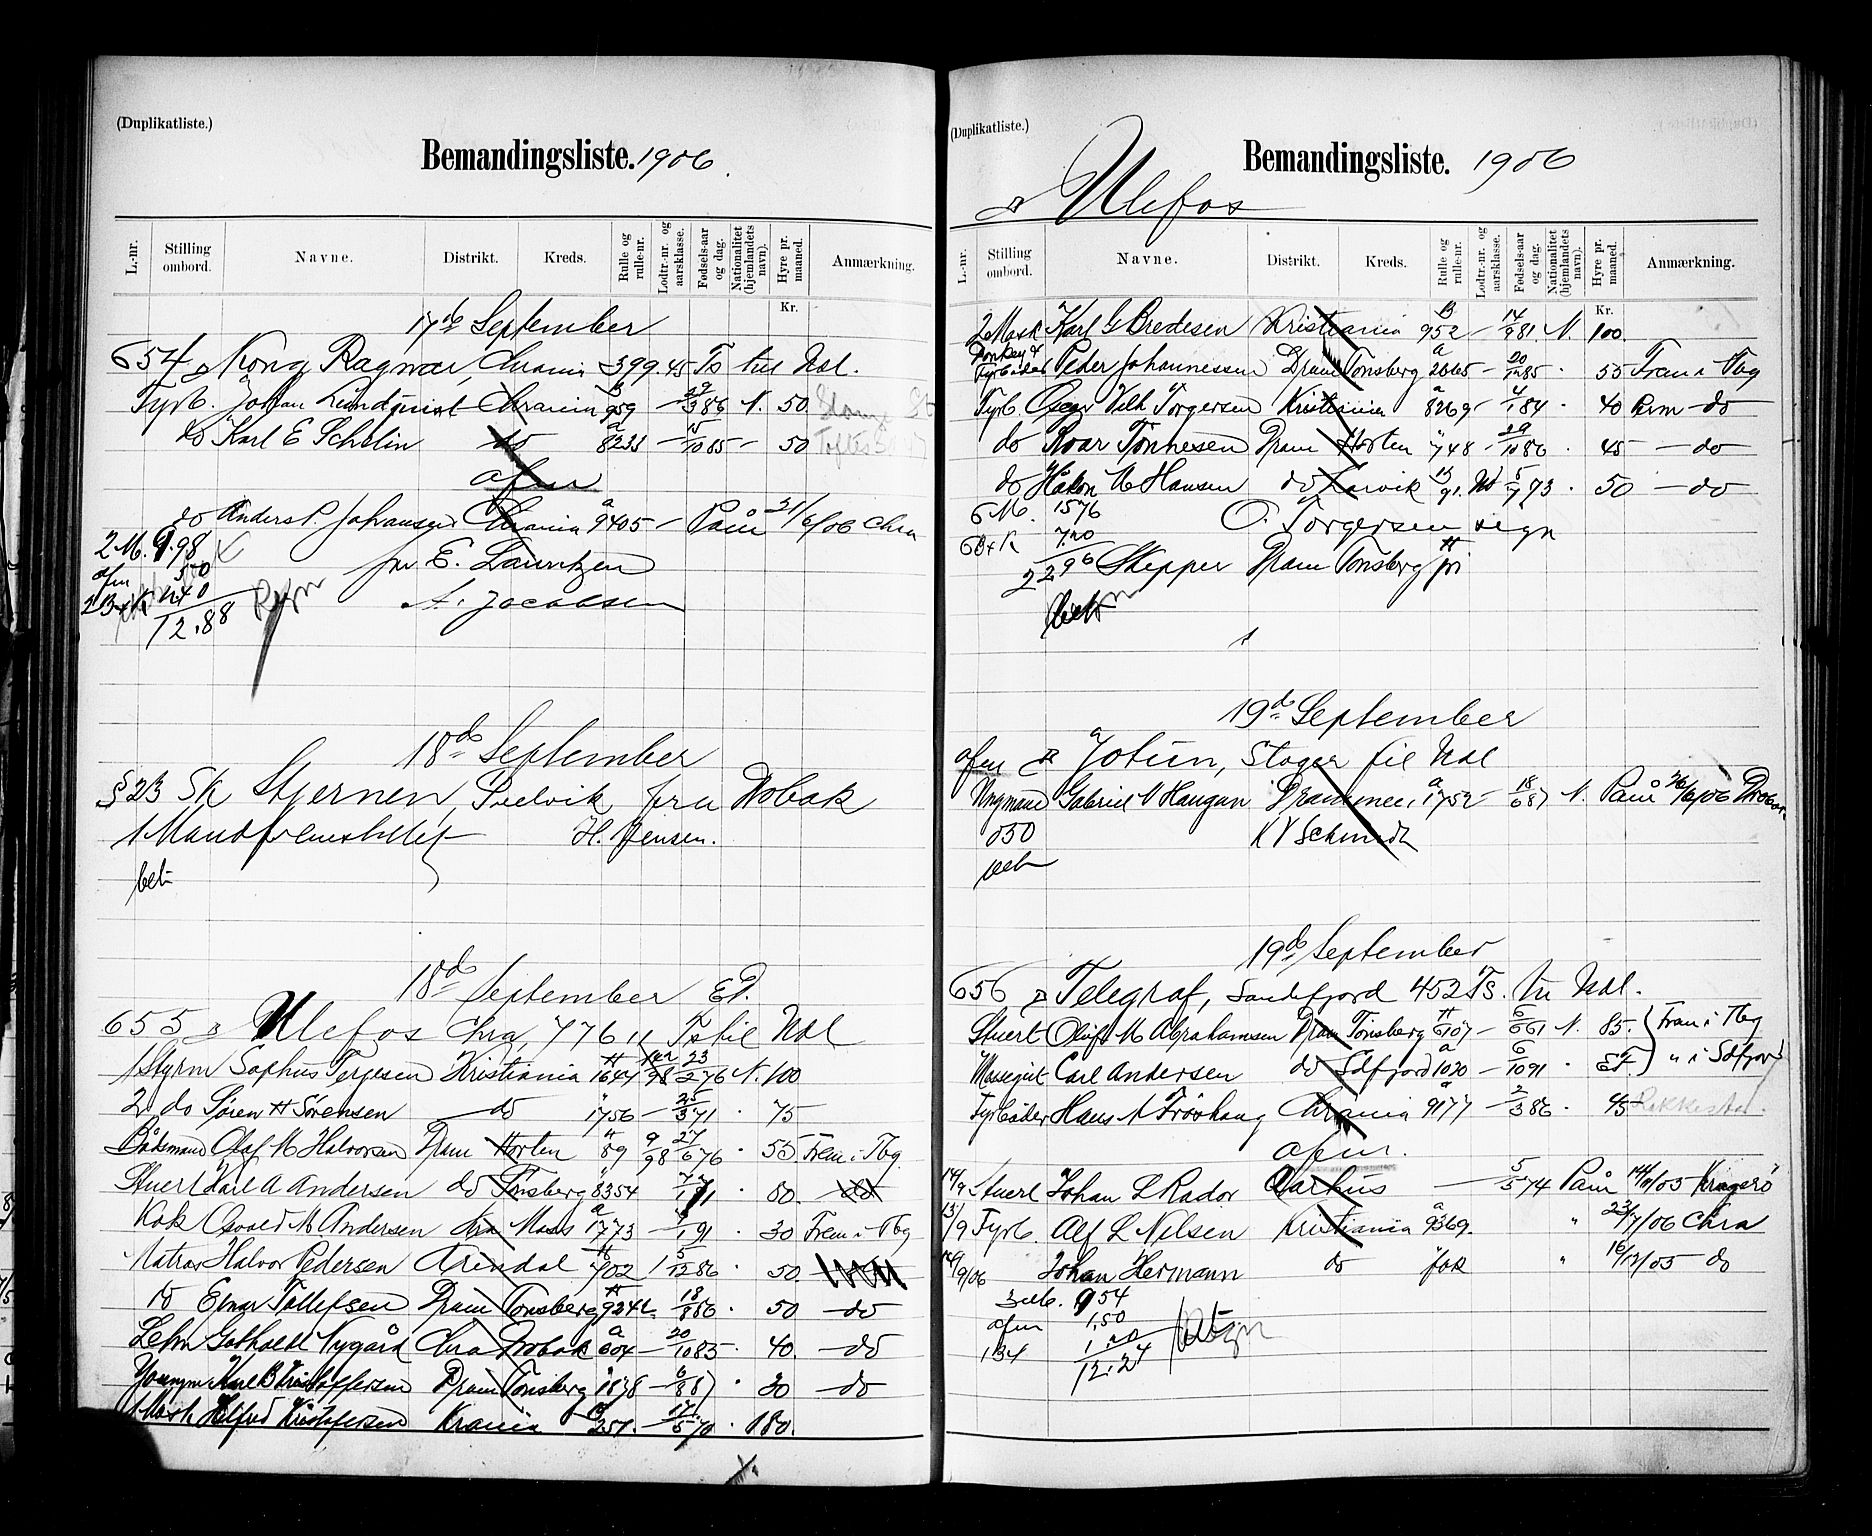 (Duplikatliste.)
Bemandingsliste. 1906.
L.-nr. Stilling ombord. Navne. Distrikt. Kreds. Rulle og rulle-nr. Lodtr.-nr. og aarsklasse. Fødsels-aar og dag. Nationalitet (hjemlandets navn). Hyre pr. maaned. Anmærkning.
Kr.
17de September
654 Kong Ragnar, Chrania 399.45 Ts til Udl.
Fyrb. Johan Lundquist Chrania B 959 — 86 N. 50
do Karl E Schelin do a 8233 — 15/10 85 — 50
afm
do Anders P. Johansen Chrania a 9405 — Paam 21/6/06 Chra
2 M. 9.98
afm 50
2 B+K 2.40
12.88
for E. Lauritzen
A. Jacobsen
18de September
§ 23 Sk Stjernen, Svelvik fra Drøbak
1 Mand fremstillet H. Jensen.
bet
18de September ED.
655 Ulefos Chra, 776 11 Ts til Udl
1 Styrm Sophus Terjesen Kristiania H 1647 98 23/2 76 N. 100
2 do Søren H Sørensen do " 1756 — 25/3 71 · 75
Bådsmand Olaf M Halvorsen Dram Horten H 89 9/98 27/6 76 · 55 Frem i Tbg.
Stuert Karl A Andersen do Tønsberg " 8354 71 · 80. do
Kok Osvald M Andersen Chra Moss a 1773 — 91 · 30 Frem i Tbg
Matros Halvor Pedersen Arendal H 702 1 5/12 86 · 50.
do Ejnar Tollefsen Dram Tønsberg H 9242 18/8 86 · 50 — do
Lehm Gothold Nygård Chra Drøbak a 604 — 20/10 83 · 40. — do
Youngm Karl B Kristoffersen Dram Tønsberg " 1878 — 6/8 87 · 30 — do
1 Mask Halfred Kristoffersen Krania B 257. — 17/5 70 · 180.
(Duplikatliste.)
Bemandingsliste. 1906
Ulefos
L.-nr. Stilling ombord. Navne. Distrikt. Kreds. Rulle og rulle-nr. Lodtr.-nr. og aarsklasse. Fødsels-aar og dag. Nationalitet (hjemlandets navn). Hyre pr. maaned. Anmærkning.
Kr.
2 Mask Karl G Bredesen Kristiania B 952 — 14/9 81. N. 100.
Donkey & Fyrbøder Peder Johannessen Dram Tønsberg a 2665 — 85 · 55 Frem i Tbg
Fyrb. Oscar Vilh Torgersen Kristiania a 8269 — 4/1 84 · 40 Frm — do
do Roar Tønnesen Dram Horten " 748 — 29/10 86 · 45 — do
do Håkon M Hansen do Larvik B 91. Ud 5/7 93 · 50 — do
6 M. 15 76
6 B+K 7.20
22 96
O. Torgersen sign
Skipper Dram Tønsberg H fri
bet
19de September
afm Jotun, Slager til Udl
Ungmand Gabriel A Haugan Drammen, a 1752 — 18/6 87 N. Paam 26/6/06 Drbak
050
bet
K V Schmidt
19de September
656 Telegraf, Sandefjord 452 Ts. til Udl.
Stuert Oluf M Abrahamsen Dram Tønsberg H 6107 — 6/6 61 N. 85. Frem i Tbg
Messegut Carl Andersen do Sdfjord a 1020 — 6/10 91 · 25. " i Sdfjord
Fyrbøder Hans A Frövhaug Chrania a 9177 — 2/3 86 · 45
afm.
14/9 Stuert Johan L Rador Aarhus — 5/5 74 Paam 14/11/05 Kragerö
13/9 Fyrb. Alf L Nilsen Kristiania a 9369. " 23/7/06 Chra
9/06 Johan Hermann do fok " 16/12/05 do
3 ub. 954
afm 1,50
1 B+K 1,20
12.24